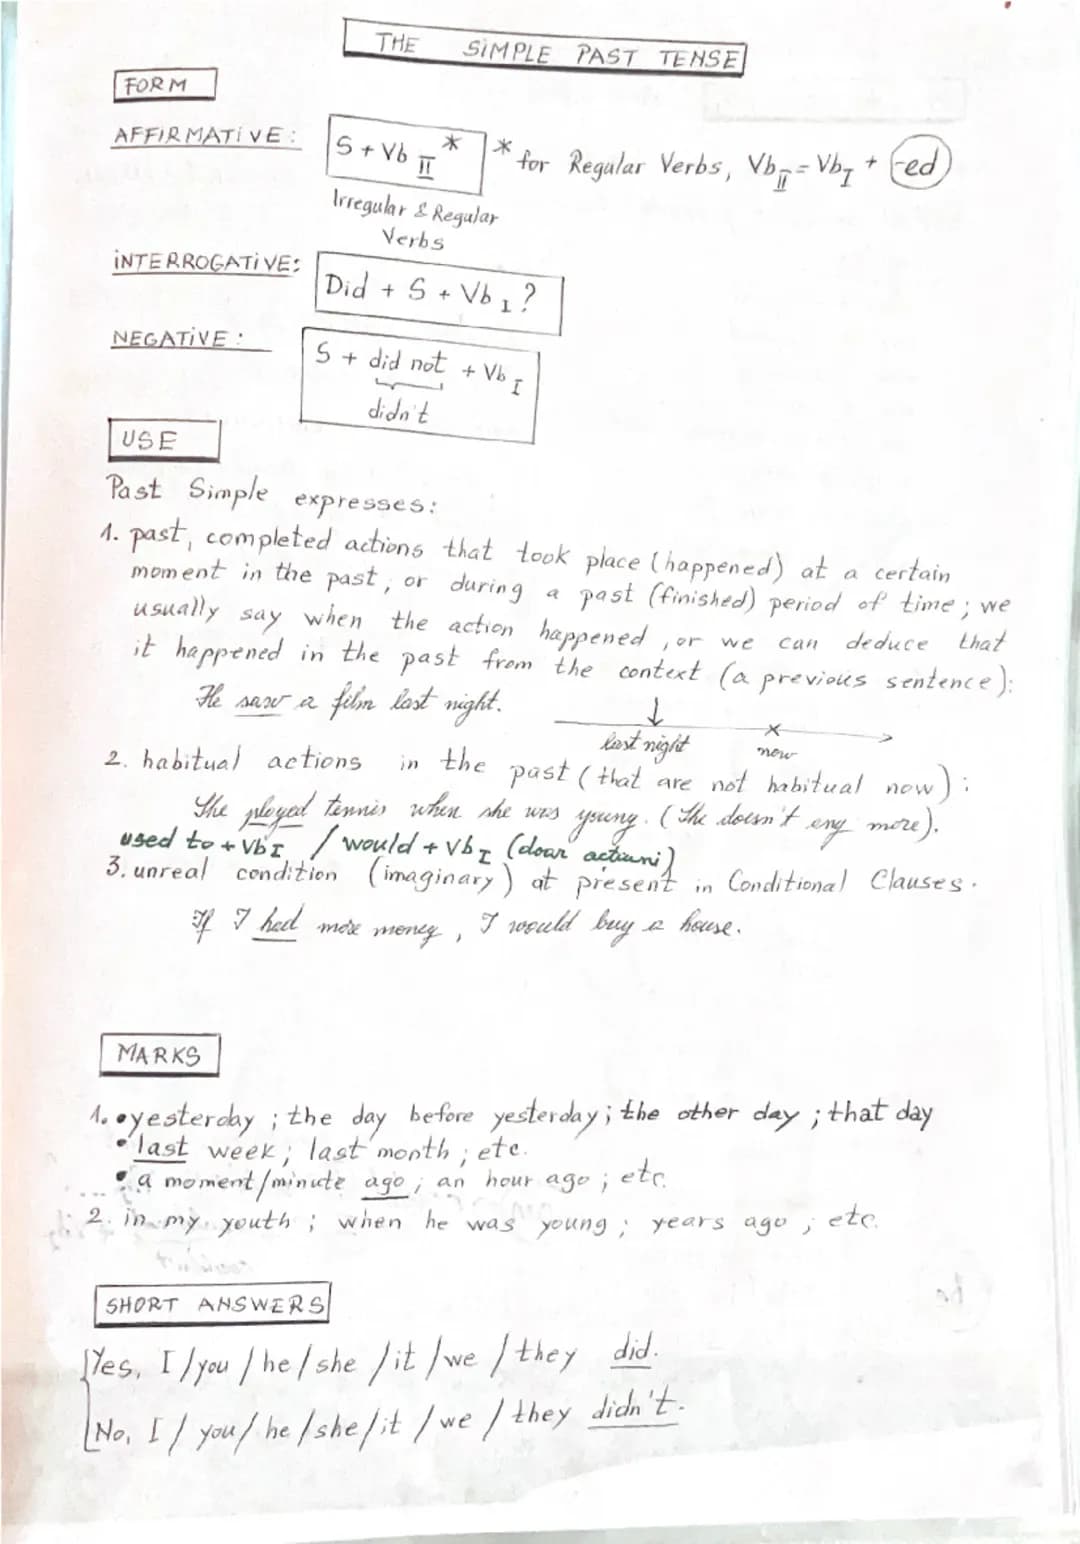 THE SIMPLE PAST TENSE
FORM
AFFIRMATIVE: S + Vb II * * for Regular Verbs, Vb II = Vb I + -ed
Irregular & Regular
Verbs
INTERROGATIVE: Did + S + Vb I ?
NEGATIVE: S + did not + Vb I
didn't
USE
Past Simple expresses:
1. past, completed actions that took place (happened) at a certain
moment in the past, or during a past (finished) period of time; we
usually say when the action happened, or we can deduce that
it happened in the past from the context (a previous sentence):
He saw a film last night.
last night now
2. habitual actions in the past (that are not habitual now):
She played tennis when she was young. (She doesn't any more).
used to + Vb I / would + Vb I (doar acțiuni)
3. unreal condition (imaginary) at present in Conditional Clauses.
If I had more money, I would buy a house.
MARKS
1. • yesterday; the day before yesterday; the other day; that day
• last week; last month; etc.
• a moment/minute ago; an hour ago; etc.
2. in my youth; when he was young; years ago; etc.
SHORT ANSWERS
Yes, I / you / he / she / it / we / they did.
No, I / you / he / she / it / we / they didn't.